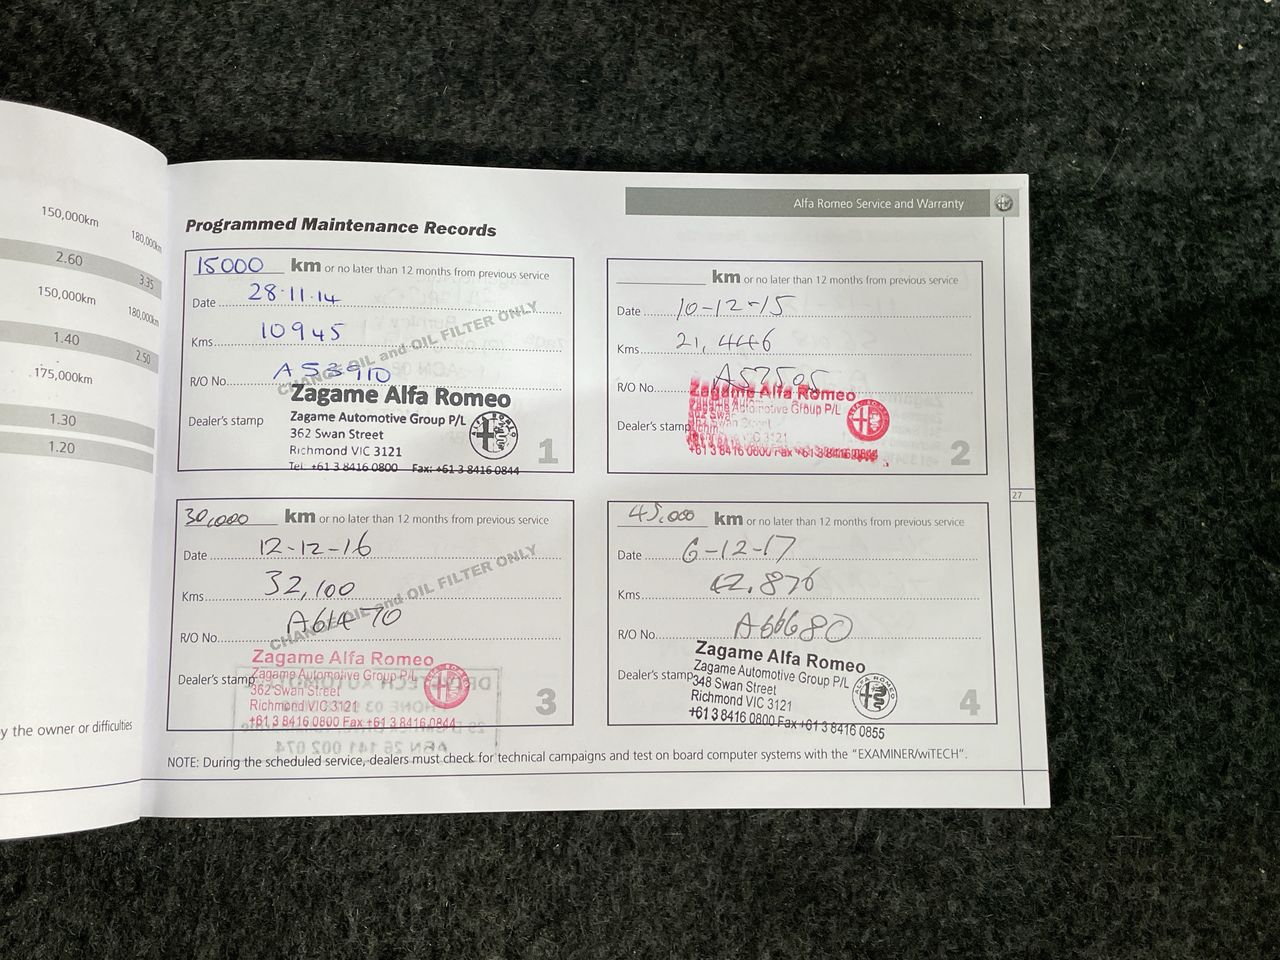 150,000km
180,000km
2.60
3.35
150,000km
180,000km
1.40
2.50
175,000km
1.30
1.20
y the owner or difficulties
Alfa Romeo Service and Warranty
Programmed Maintenance Records
15000 km or no later than 12 months from previous service
Date 28·11·14
Kms 10945
CHANGE OIL and OIL FILTER ONLY
R/O No. A53910
Dealer's stamp
Zagame Alfa Romeo
Zagame Automotive Group P/L
362 Swan Street
Richmond VIC 3121
Tel: +61 3 8416 0800 Fax: +61 3 8416 0844
ALFA ROMEO
1
km or no later than 12 months from previous service
Date 10-12-15
Kms 21,446
R/O No. A57505
Dealer's stamp
Zagame Alfa Romeo
Zagame Automotive Group P/L
362 Swan Street
VIC 3121
+61 3 8416 0800 Fax +61 3 8416
2
30,000 km or no later than 12 months from previous service
Date 12-12-16
Kms 32,100
CHANGE OIL and OIL FILTER ONLY
R/O No. A61470
Dealer's stamp
Zagame Alfa Romeo
Zagame Automotive Group P/L
362 Swan Street
Richmond VIC 3121
+61 3 8416 0800 Fax +61 3 8416 0844
3
45,000 km or no later than 12 months from previous service
Date 6-12-17
Kms 42,876
R/O No. A66680
Dealer's stamp
Zagame Alfa Romeo
Zagame Automotive Group P/L
348 Swan Street
Richmond VIC 3121
+61 3 8416 0800 Fax +61 3 8416 0855
ALFA ROMEO
4
27
NOTE: During the scheduled service, dealers must check for technical campaigns and test on board computer systems with the "EXAMINER/wiTECH".